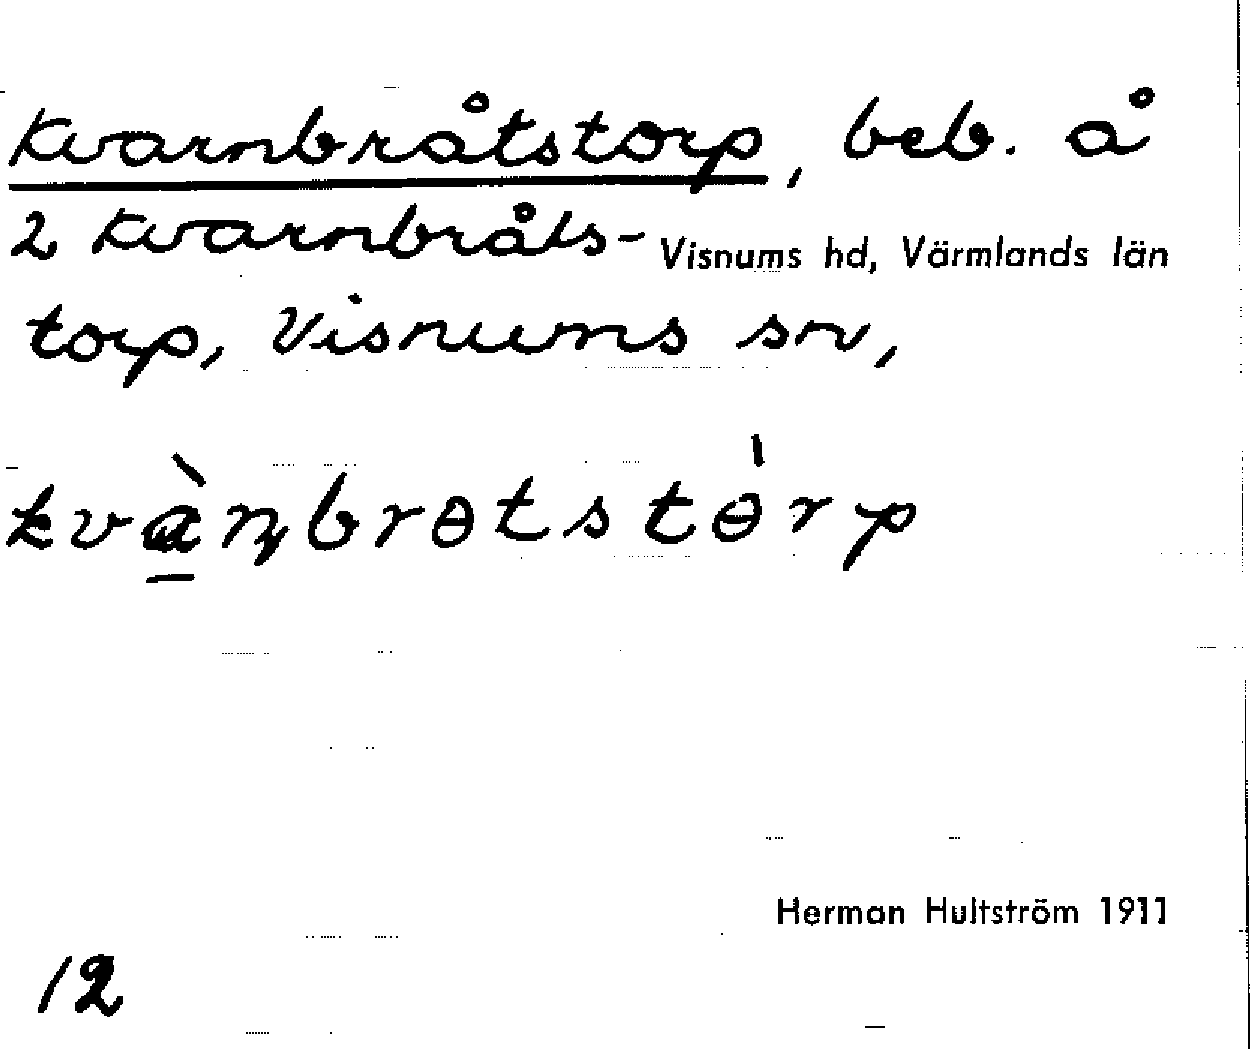 Kvarnbråtstorp, beb. å
2 Kvarnbråts-
Visnums hd, Värmlands län
torp, Visnums sn,
kvàɳbrɵtstɵ̀rp
Herman Hultström 1911
12